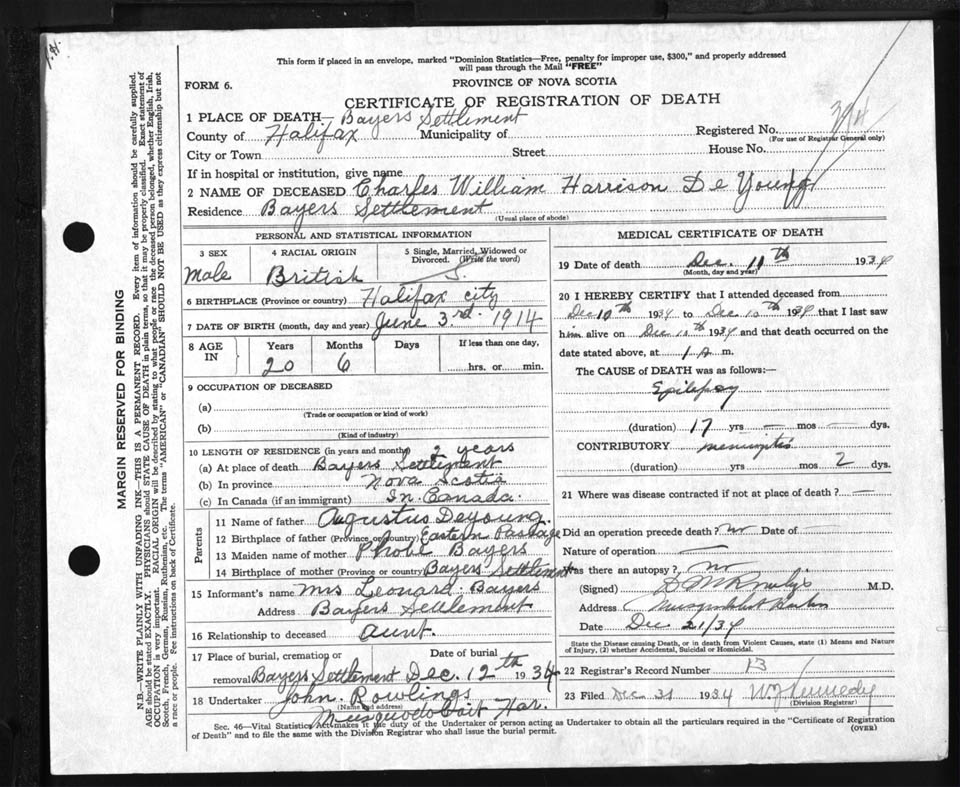 This form if placed in an envelope, marked "Dominion Statistics—Free, penalty for improper use, $300," and properly addressed
will pass through the Mail "FREE"
FORM 6.
PROVINCE OF NOVA SCOTIA
CERTIFICATE OF REGISTRATION OF DEATH
1 PLACE OF DEATH— Bayers Settlement
County of Halifax Municipality of Registered No.
(For use of Registrar General only)
City or Town Street House No.
If in hospital or institution, give name
2 NAME OF DECEASED Charles William Harrison De Young
Residence Bayers Settlement
(Usual place of abode)
PERSONAL AND STATISTICAL INFORMATION
3 SEX 4 RACIAL ORIGIN 5 Single, Married, Widowed or
Divorced. (Write the word)
Male British S.
6 BIRTHPLACE (Province or country) Halifax city
7 DATE OF BIRTH (month, day and year) June 3rd. 1914
8 AGE IN Years Months Days If less than one day,
20 6 hrs. or min.
9 OCCUPATION OF DECEASED
(a)
(Trade or occupation or kind of work)
(b)
(Kind of industry)
10 LENGTH OF RESIDENCE (in years and months) 2 years
(a) At place of death Bayers Settlement
(b) In province Nova Scotia
(c) In Canada (if an immigrant) In Canada.
Parents
11 Name of father Augustus Deyoung.
12 Birthplace of father (Province or country) Eastern Passage
13 Maiden name of mother Phobe Bayers
14 Birthplace of mother (Province or country) Bayers Settlement
15 Informant's name Mrs Leonard Bayers
Address Bayers Settlement
16 Relationship to deceased aunt.
17 Place of burial, cremation or removal Date of burial
Bayers Settlement Dec. 12th 1934
18 Undertaker John Rowlings
(Name and address)
Musquodoboit Har.
MEDICAL CERTIFICATE OF DEATH
19 Date of death Dec. 11th 1934
(Month, day and year)
20 I HEREBY CERTIFY that I attended deceased from
Dec 10th 1934 to Dec 10th 1934 that I last saw
him alive on Dec 10th 1934 and that death occurred on
date stated above, at 1 A m.
The CAUSE of DEATH was as follows:—
Epilepsy
(duration) 17 yrs — mos — dys.
CONTRIBUTORY meningitis
(duration) yrs mos 2 dys.
21 Where was disease contracted if not at place of death? —
Did an operation precede death? no Date of —
Nature of operation —
Was there an autopsy? no
(Signed) M.D.
Address
Date Dec 21/34
State the Disease causing Death, or in death from Violent Causes, state (1) Means and Nature
of Injury, (2) whether Accidental, Suicidal or Homicidal.
22 Registrar's Record Number 13
23 Filed Dec 31 1934 W J Kennedy
(Division Registrar)
Sec. 46—Vital Statistics Act makes it the duty of the Undertaker or person acting as Undertaker to obtain all the particulars required in the "Certificate of Registration
of Death" and to file the same with the Division Registrar who shall issue the burial permit.
(OVER)
MARGIN RESERVED FOR BINDING
N.B.—WRITE PLAINLY WITH UNFADING INK—THIS IS A PERMANENT RECORD. Every item of information should be carefully supplied.
AGE should be stated EXACTLY. PHYSICIANS should STATE CAUSE OF DEATH in plain terms, so that it may be properly classified. Exact statement of
OCCUPATION is very important. RACIAL ORIGIN will be described by stating to what people or race the deceased person belonged, whether English, Irish,
Scotch, French, German, Russian, Ruthenian, etc. The terms "AMERICAN" or "CANADIAN" SHOULD NOT BE USED as they express citizenship but not
a race or people. See instructions on back of Certificate.